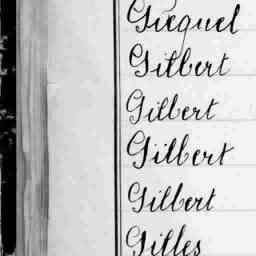 Gicquel
Gilbert
Gilbert
Gilbert
Gilbert
Gilles